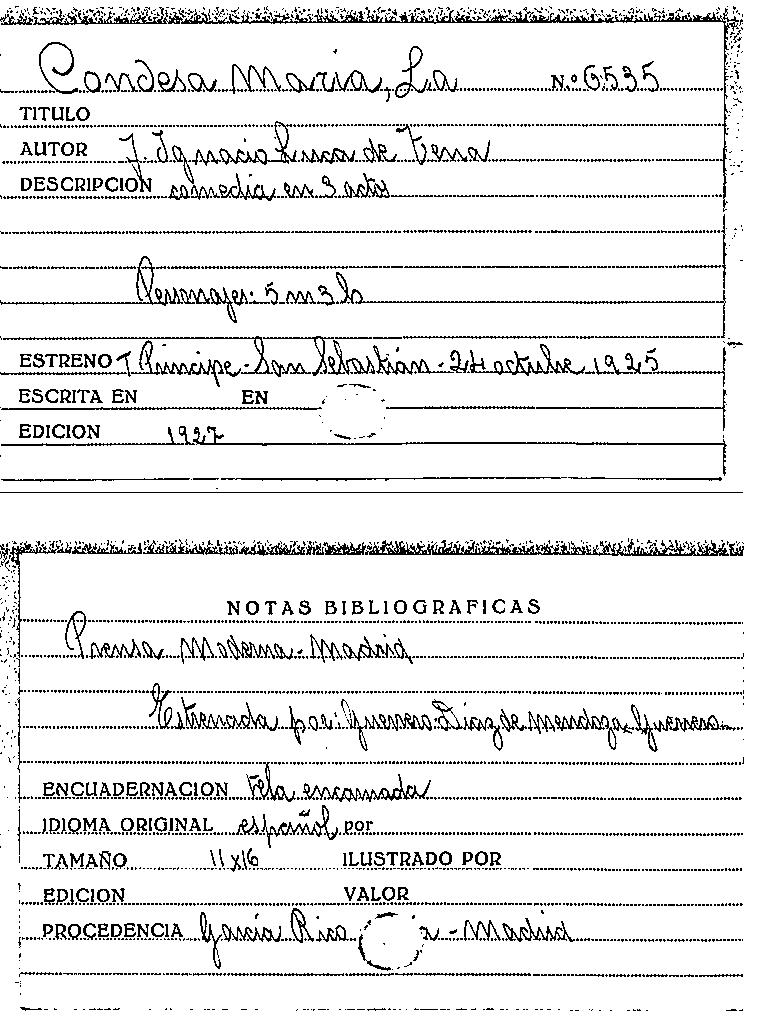 Condesa Maria, La N.º 6535
TITULO
AUTOR J. Ignacio Luca de Tena
DESCRIPCION comedia en 3 actos
Personajes: 5 m 3 h
ESTRENO T. Principe - San Sebastián - 24 octubre 1925
ESCRITA EN EN
EDICION 1927
NOTAS BIBLIOGRAFICAS
Prensa Moderna - Madrid
Estrenada por: Guerrero - Diaz de Mendoza - Guerrero -
ENCUADERNACION Tela encarnada
IDIOMA ORIGINAL español por
TAMAÑO 11 x 16 ILUSTRADO POR
EDICION VALOR
PROCEDENCIA García Rico - Madrid